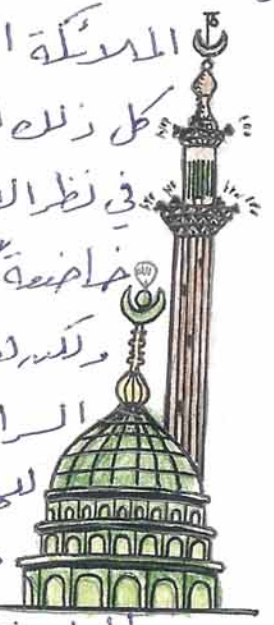 الملائكة ا
كل ذلك ا
في نظر ال
خاضعة
ولكن
السرا